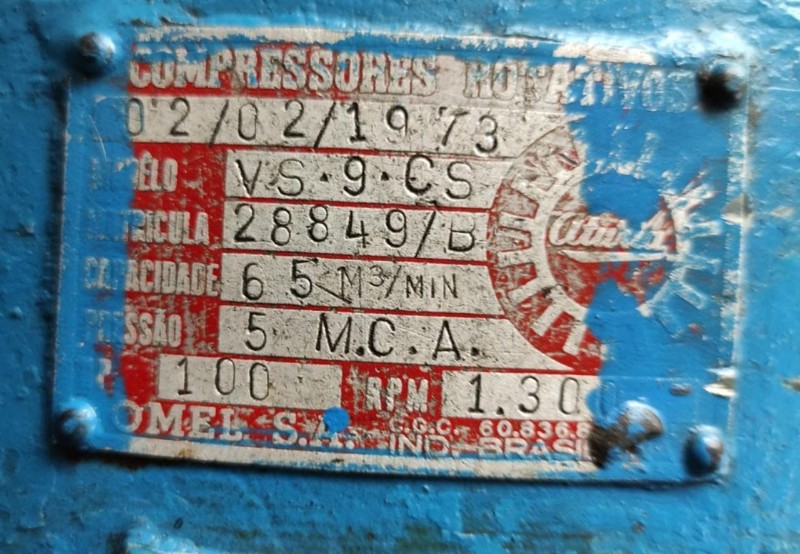 COMPRESSORES ROTATIVOS
02/02/1973
MODÊLO VS·9·CS
MATRICULA 28849/B
CAPACIDADE 65 M³/MIN
PRESSÃO 5 M.C.A.
100 RPM 1.30
OMEL S.A. C.G.C. 60.836.8
IND. BRASIL